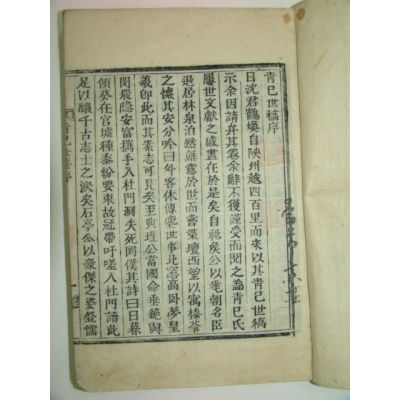 青已世稿序
日沈君鶴煥自陜州越四百里而來以其青已世稿
示余因請弁其卷余辭不獲謹受而閱之盖青已氏
屢世文獻之盛盡在於是矣自公以朝名臣
退居林泉泊然無意於世而嘗築壇西望以寓榛苓
之懷其安分吟曰外客休傳塵世事北窓高臥夢皇
羲卽此而其素志可見矣至典理公當國命垂絶與
閔農隱安富攜手入杜門洞矢死罔僕其詩曰日暮
傾葵在宮墟種黍紛要束故冠帶吁嗟入杜門讀此
足以釀千古志士之淚矣石亭公以豪傑之姿儒